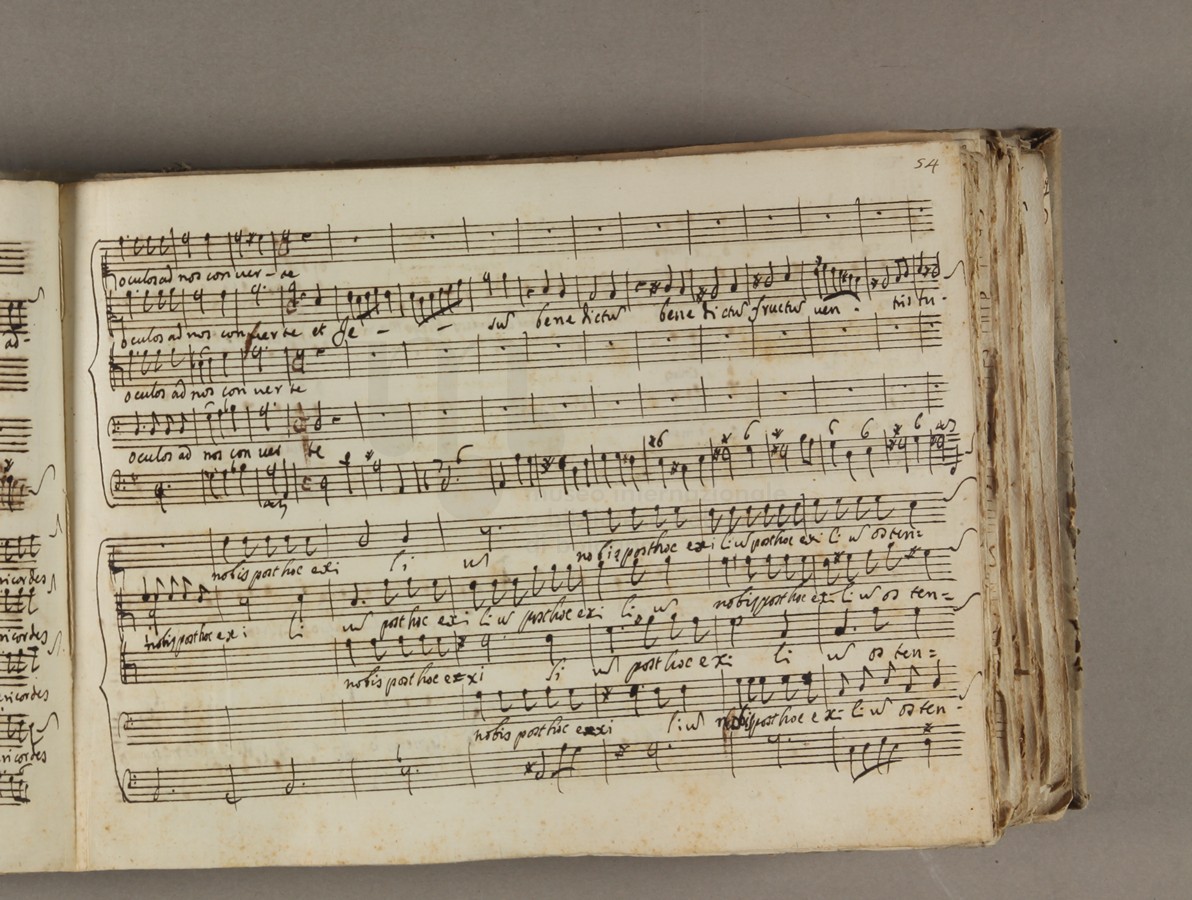 54
oculos ad nos con ver - te
oculos ad nos converte et Je - - sus benedictus benedictus fructus ven - tris tu -
oculos ad nos con ver te
oculos ad nos con ver te
6 6 6 6 6
museo internazionale
nobis post hoc exi li um nobis post hoc exi lium post hoc exi li um osten =
nobis post hoc exi li um post hoc exi lium post hoc exi li um nobis post hoc exi li um os ten =
nobis post hoc exi li um post hoc exi li um os ten =
nobis post hoc exi lium nobis post hoc exi li um os ten -
6
ad -
ricordes
ricordes
ricordes
ricordes